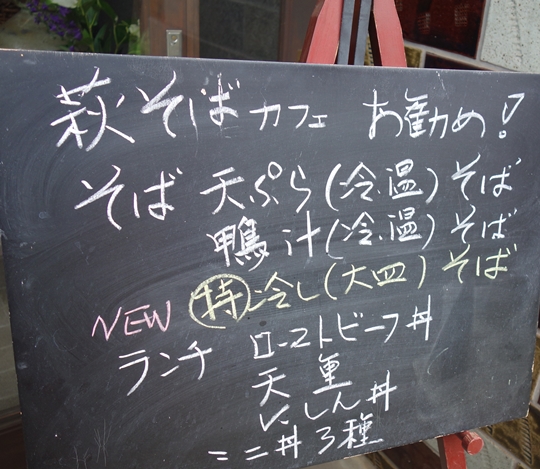 萩そばカフェ お勧め!
そば 天ぷら(冷.温)そば
鴨汁(冷.温)そば
特冷し(大皿)そば
NEW ローストビーフ丼
ランチ 天重
にしん丼
ミニ丼3種